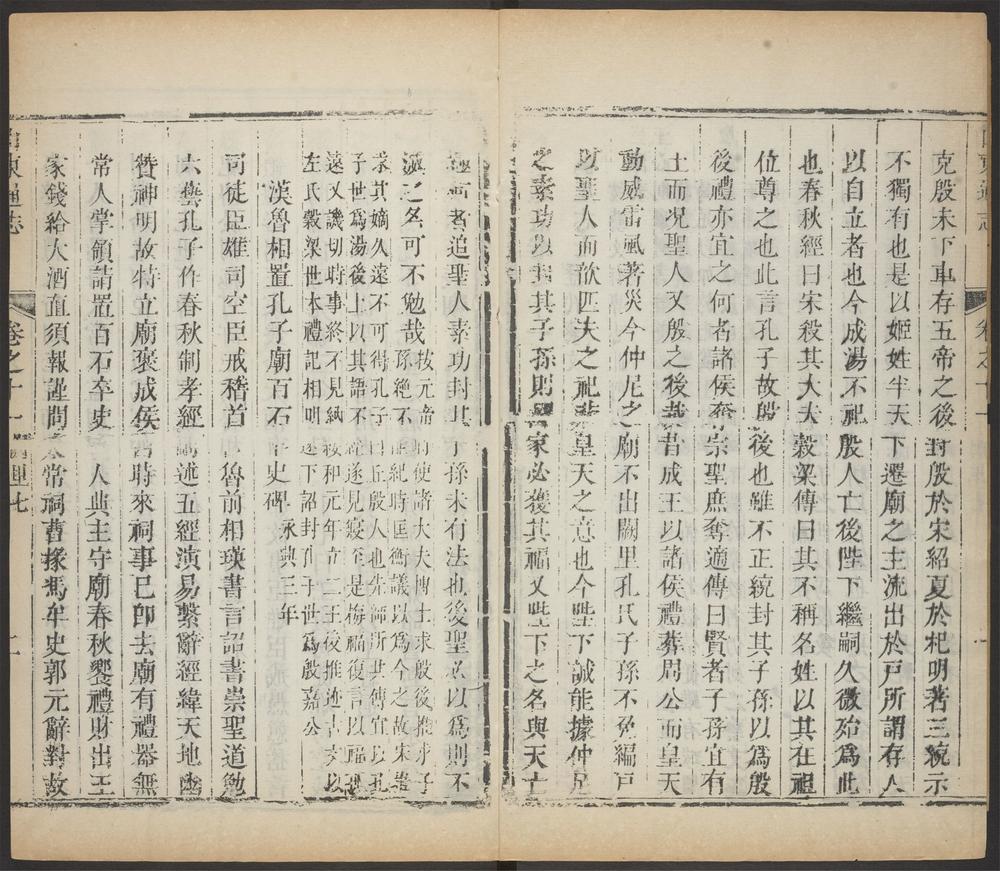 克殷未下車存五帝之後封殷於宋紹夏於杞明著三統示
不獨有也是以姬姓半天下遷廟之主流出於戶所謂存人
以自立者也今成湯不祀殷人亡後陛下繼嗣久微殆為此
也春秋經曰宋殺其大夫穀梁傳曰其不稱名姓以其在祖
位尊之也此言孔子故殷後也雖不正統封其子孫以為殷
後禮亦宜之何者諸侯奪宗聖庶奪適傳曰賢者子孫宜有
土而况聖人又殷之後哉昔成王以諸侯禮葬周公而皇天
動威雷風著災今仲尼之廟不出闕里孔氏子孫不免編戶
以聖人而歆匹夫之祀非皇天之意也今陛下誠能據仲尼
之素功以封其子孫則國家必獲其福又陛下之名與天亡
極何者追聖人素功封其子孫未有法也後聖必以為則不
滅之名可不勉哉按元帝時使諸大夫博士求殷後推求子
孫絕不能紀時匡衡議以為今之故宋推
求其嫡久遠不可得孔子曰丘殷人也先師所共傳宜以孔
子世為湯後上以其語不經遂見寢至是梅福復言以福孤
遠又譏切時事終不見納綏和元年立二王後推迹古文以
左氏穀梁世本禮記相明遂下詔封孔子世為殷嘉公
漢魯相置孔子廟百石卒史碑 永興三年
司徒臣雄司空臣戒稽首 魯前相瑛書言詔書崇聖道勉
六藝孔子作春秋制孝經 述五經演易繫辭經緯天地幽
贊神明故特立廟褒成侯 時來祠事已卽去廟有禮器無
常人掌領請置百石卒史 人典主守廟春秋饗禮財出王
家錢給大酒直須報謹問 常祠曹掾馮牟史郭元辭對故
山東通志
卷之十一
七